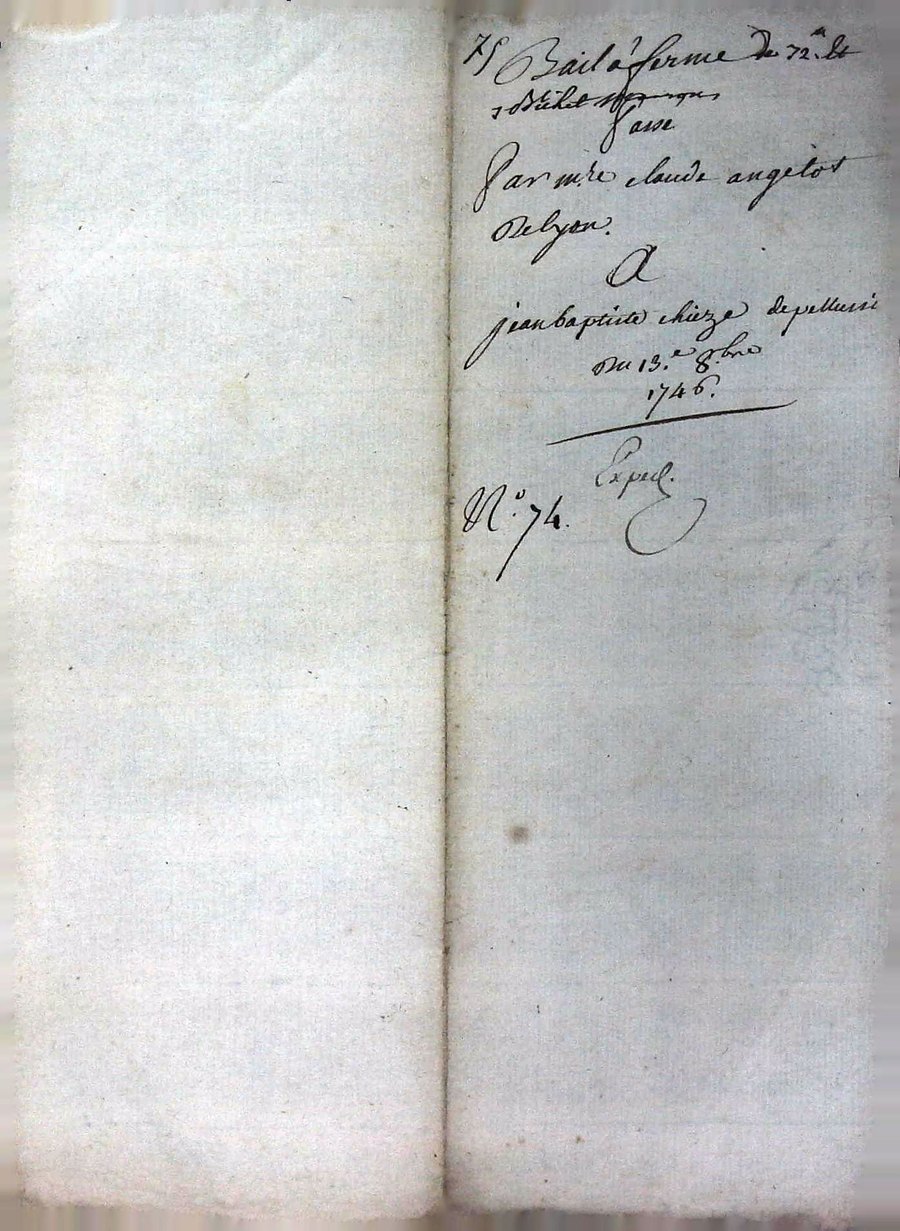 75 Bail à ferme de 72.ᵗᵗ et
passé
Par m.re claude angelot
De lyon.
A
jean baptiste chieze de pellussi
Du 13.e 8.bre
1746.
Exped.
N.o 74.